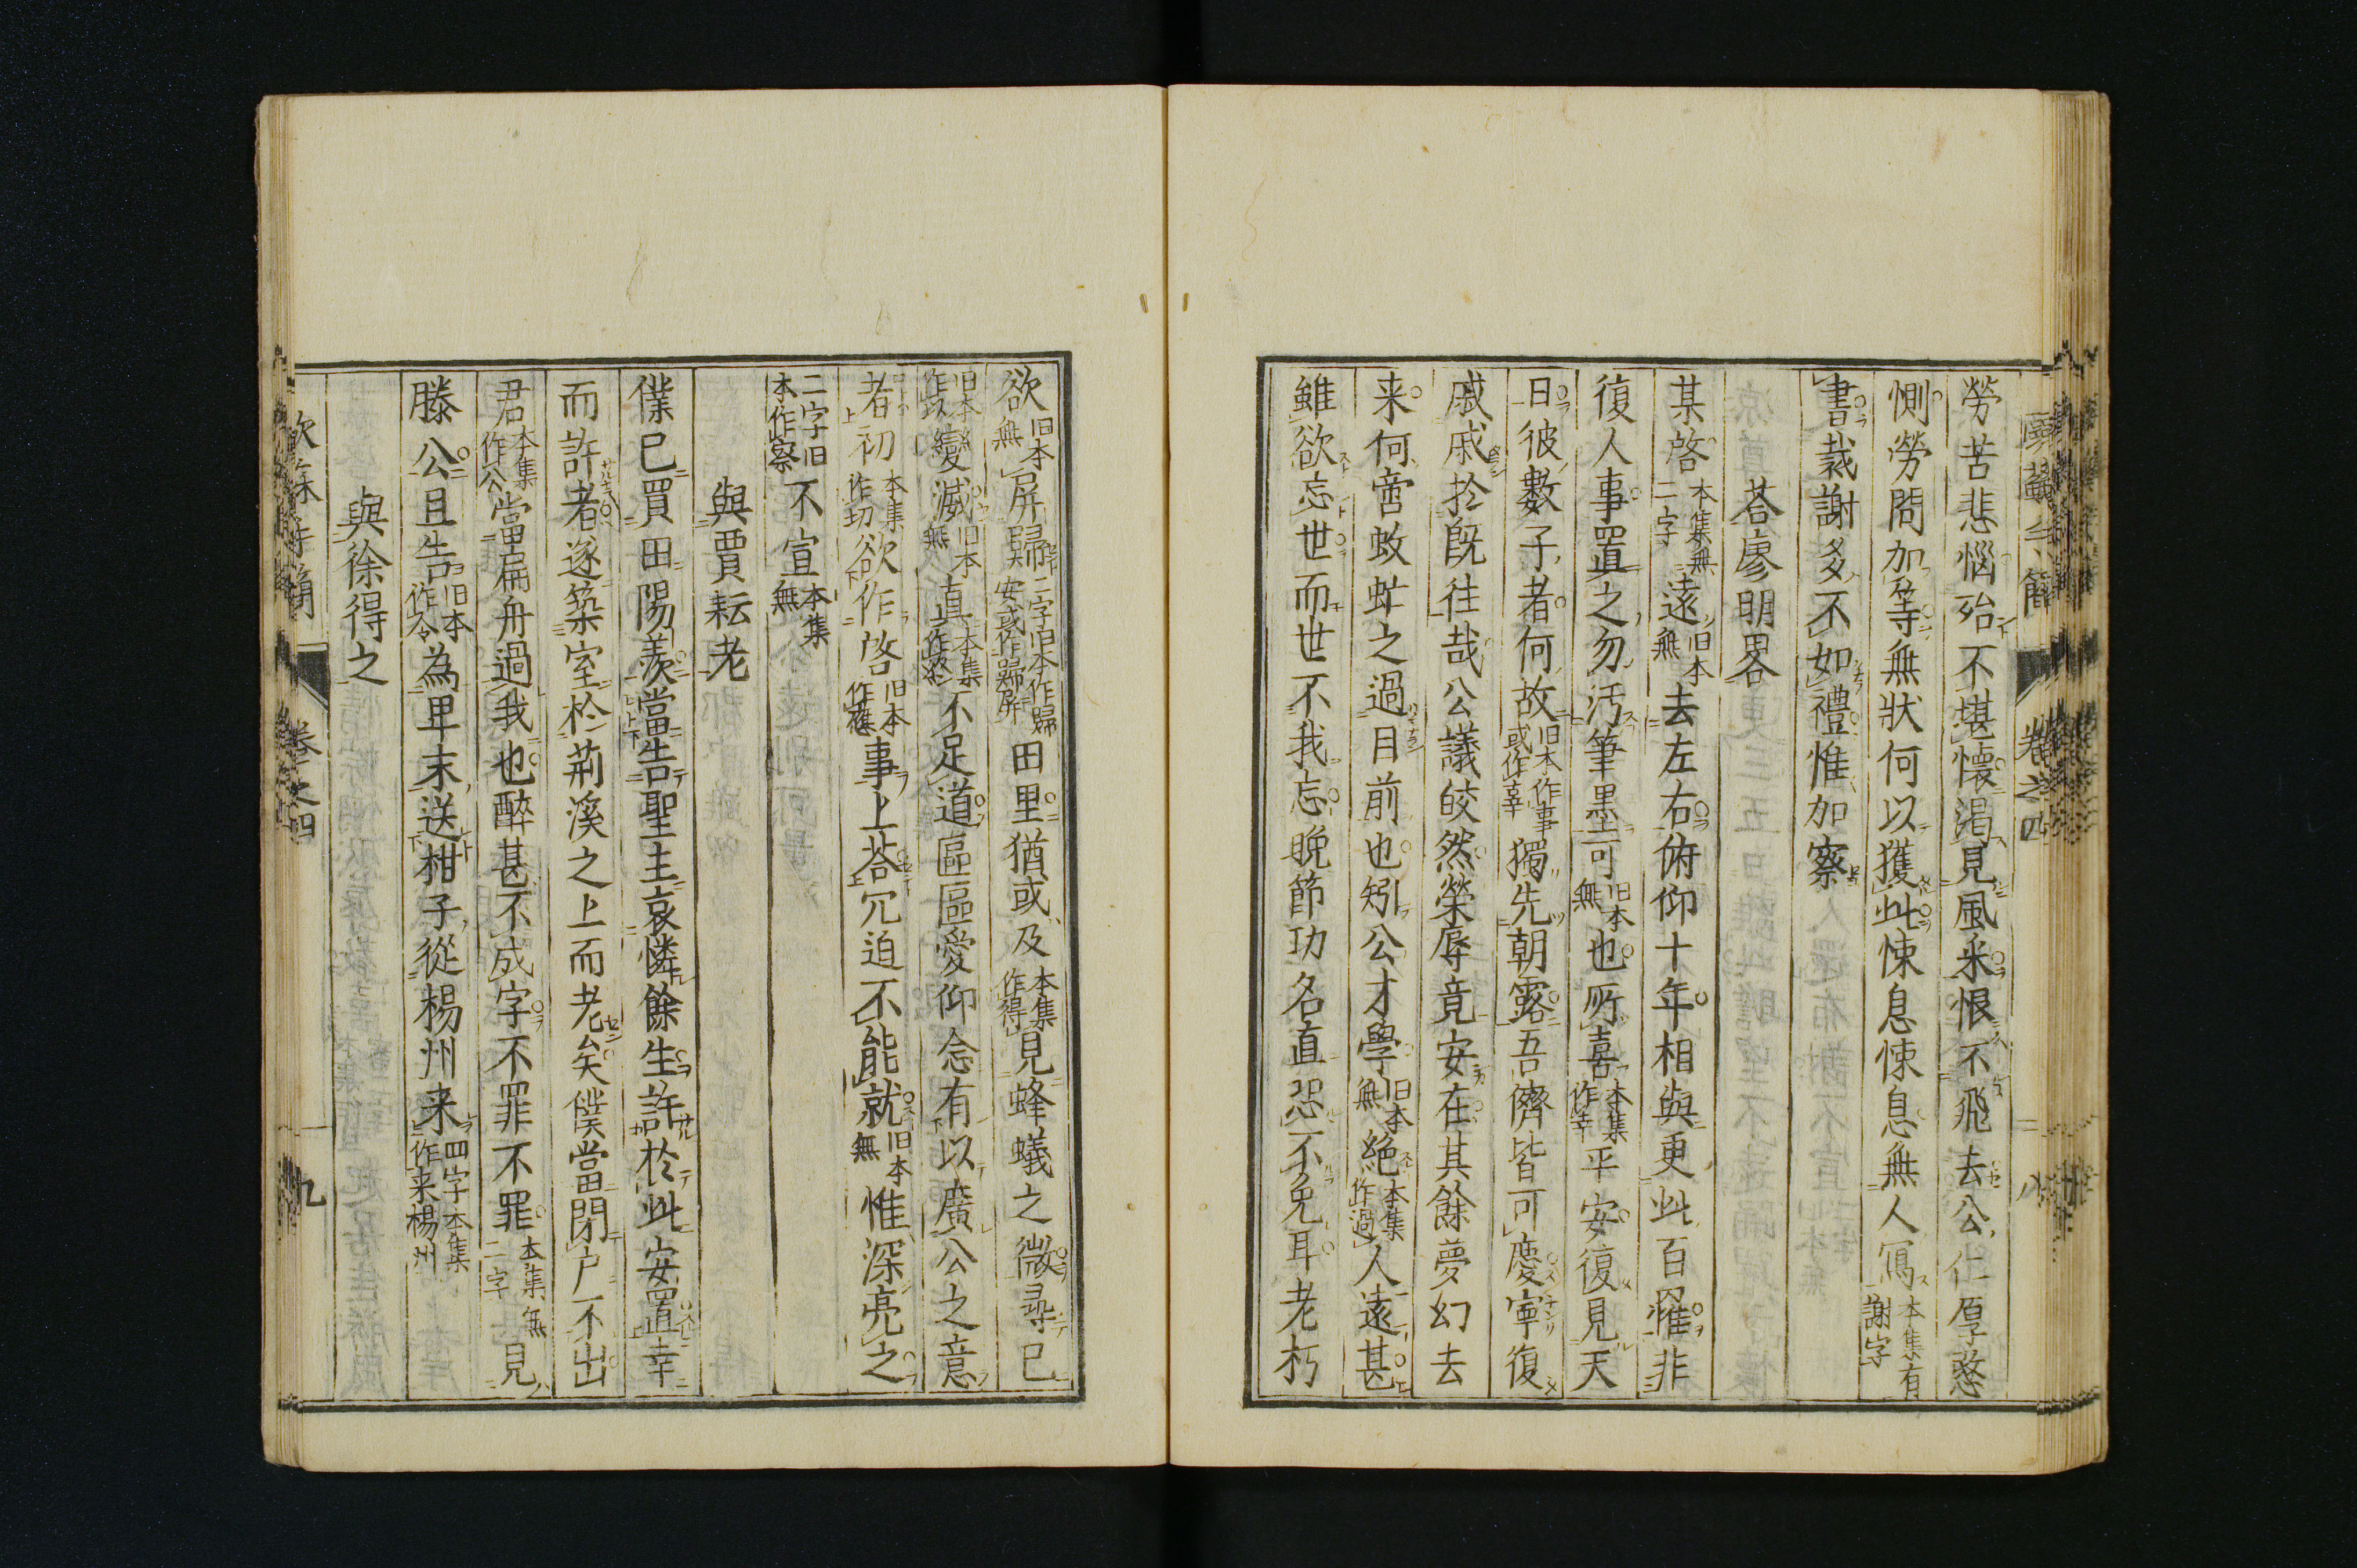 勞苦悲惱殆不堪懷渴見風采恨不飛去公仁厚愍
惻勞問加等無狀何以獲此悚息悚息無人寫本集有謝字
書裁謝多不如禮惟加察
荅廖明畧
某啓本集無二字遠旧本無去左右俯仰十年相與更此百罹非
復人事置之勿汚筆墨可旧本無也所喜本集作幸平安復見天
日彼數子者何故旧本作事或作辜獨先朝露吾儕皆可慶寧復
戚戚於既往哉公議皎然榮辱竟安在其餘夢幻去
来何啻蚊虻之過目前也矧公才學旧本無絶本集作過人遠甚
雖欲忘世而世不我忘晚節功名直恐不免耳老朽
欲旧本無屏歸二字旧本作歸安或作歸屏田里猶或及本集作得見蜂蟻之微尋已
旧本作以變滅旧本無真本集作終不足道區區愛仰念有以廣公之意
者初本集作切欲作啓旧本作應事上荅冗迫不能就旧本無惟深亮之
二字旧本作察不宣本集無
與賈耘老
僕已買田陽羨當告聖主哀憐餘生許於此安置幸
而許者遂築室於荊溪之上而老矣僕當閉户不出
君本集作公當扁舟過我也醉甚不成字不罪不罪本集無二字見
滕公且告旧本作令為卑末送柑子從楊州来四字本集作来楊州
與徐得之
卷之四
九
卷之四
八